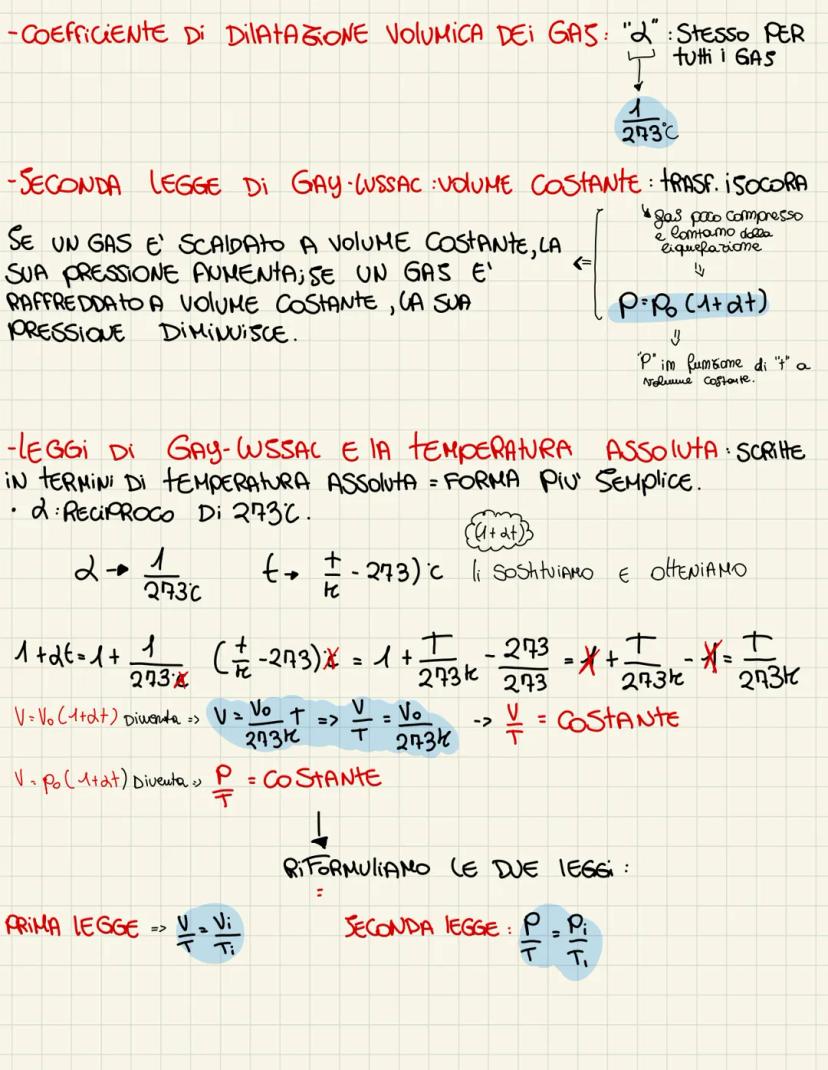 -COEFFICIENTE DI DILATAZIONE VOLUMICA DEI GAS: "α" : STESSO PER
TUTTI I GAS
1/273°C
-SECONDA LEGGE DI GAY-LUSSAC: VOLUME COSTANTE: TRASF. ISOCORA
gas poco compresso
e lontano dalla
liquefazione
SE UN GAS E' SCALDATO A VOLUME COSTANTE, LA
SUA PRESSIONE AUMENTA; SE UN GAS E'
RAFFREDDATO A VOLUME COSTANTE, LA SUA
PRESSIONE DIMINUISCE.
⇐
⇓
P=P₀ (1+αt)
⇓
"P" in funzione di "t" a
volume costante.
-LEGGI DI GAY-LUSSAC E LA TEMPERATURA ASSOLUTA: SCRITTE
IN TERMINI DI TEMPERATURA ASSOLUTA = FORMA PIU' SEMPLICE.
• α: RECIPROCO DI 273°C.
(1+αt)
α → 1/273°C t → t/k - 273)°C li SOSTITUIAMO E OTTENIAMO
1+αt = 1 + 1/273°C (t/k - 273)°C = 1 + T/273K - 273/273 = 1 + T/273K - 1 = T/273K
V=V₀(1+αt) Diventa => V = V₀/273K T => V/T = V₀/273K -> V/T = COSTANTE
V = p₀(1+αt) Diventa => P/T = COSTANTE
RIFORMULIAMO LE DUE LEGGI :
:
PRIMA LEGGE => V/T = Vi/Ti SECONDA LEGGE : P/T = Pi/T₁